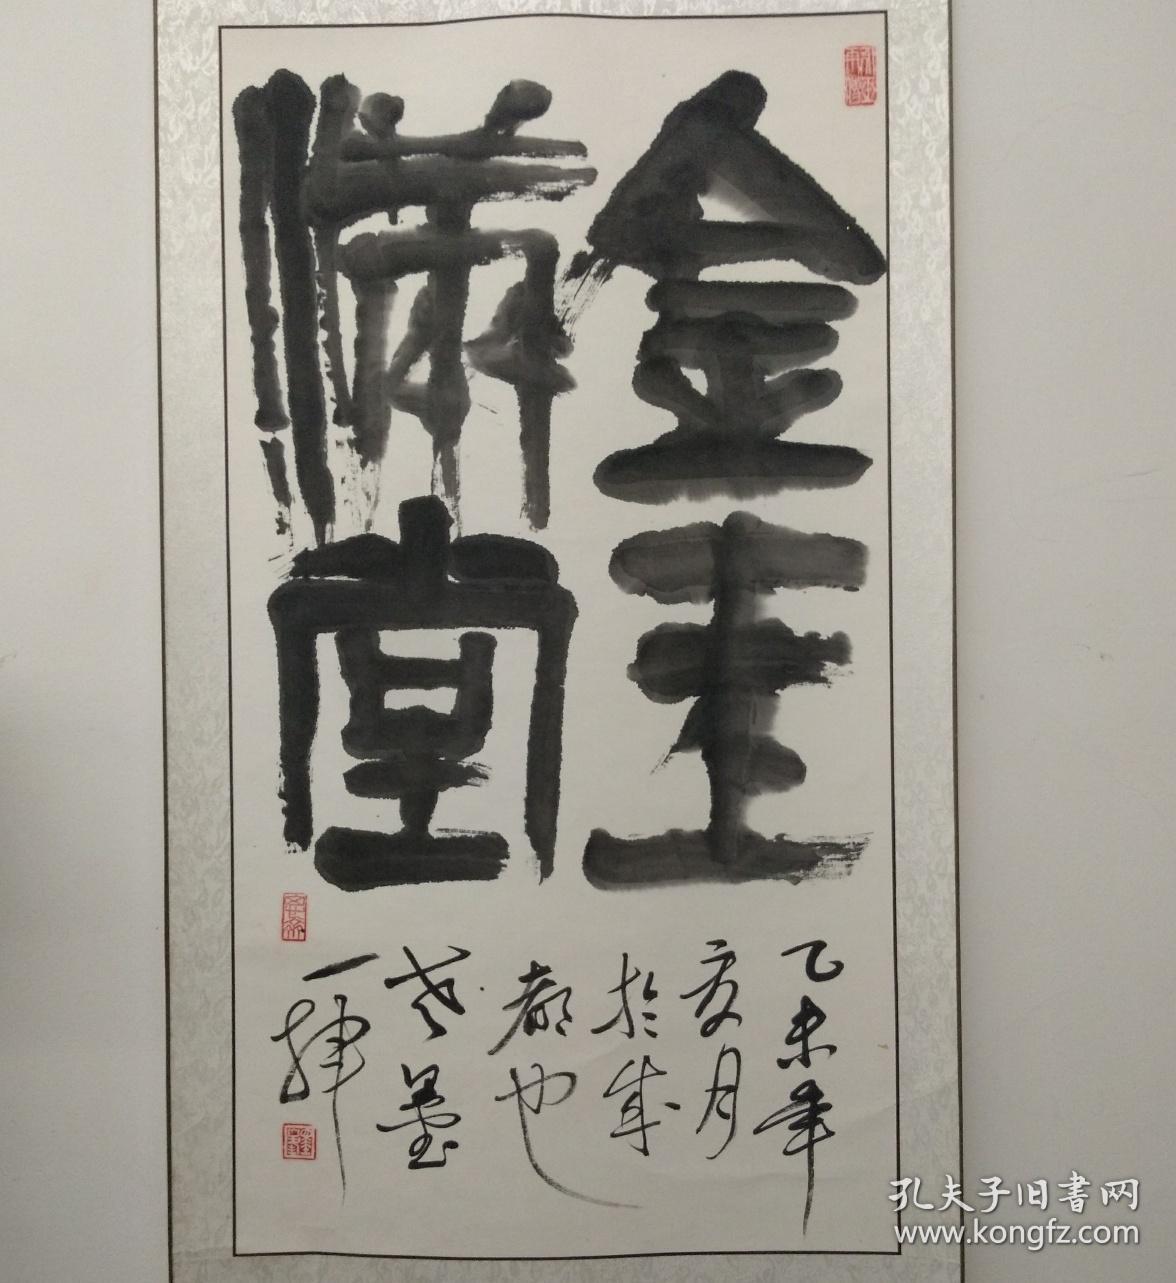 金玉
满堂
乙未年
亥月
於成
都也
老墨
一挥
孔夫子旧書网
www.kongfz.com